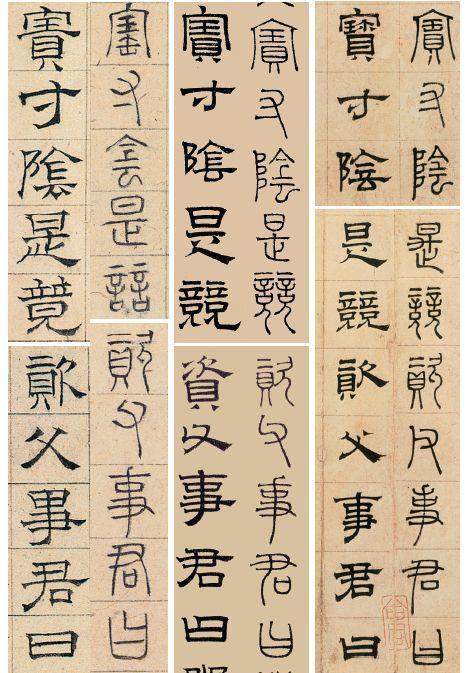 寶寸陰
寶寸陰
是競資父事君曰
是競資父事君曰
寶寸陰是競
寶寸陰是競
資父事君曰
資父事君曰
寶寸陰是競
寶寸陰是競
資父事君曰
資父事君曰